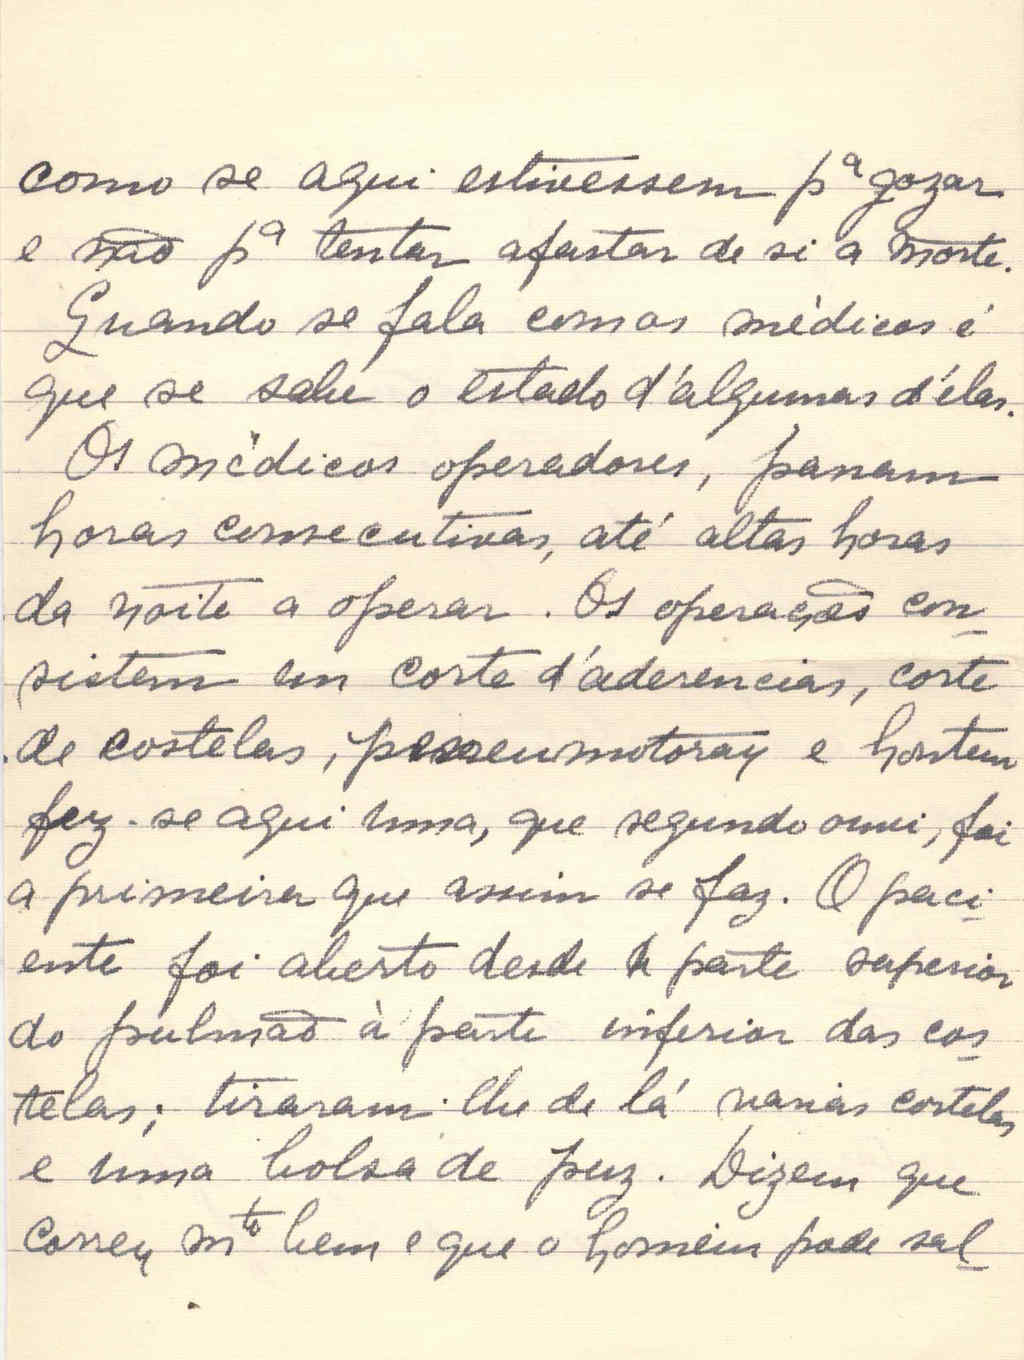 como se aqui estivessem pª gozar
e não pª tentar afastar de si a morte.
Quando se fala com os médicos é
que se sabe o estado d'algumas d'élas.
Os médicos operadores, passam
horas consecutivas, até altas horas
da noite a operar. Os operação con-
sistem em corte d'aderencias, corte
de costelas, e hontem
fez-se aqui uma, que segundo ouvi, foi
a primeira que assim se faz. O paci-
ente foi aberto desde a parte superior
do pulmão à parte inferior das cos-
telas; tiraram-lhe de lá varias costelas
e uma bolsa de puz. Dizem que
correu mto bem e que o homem pode sal-